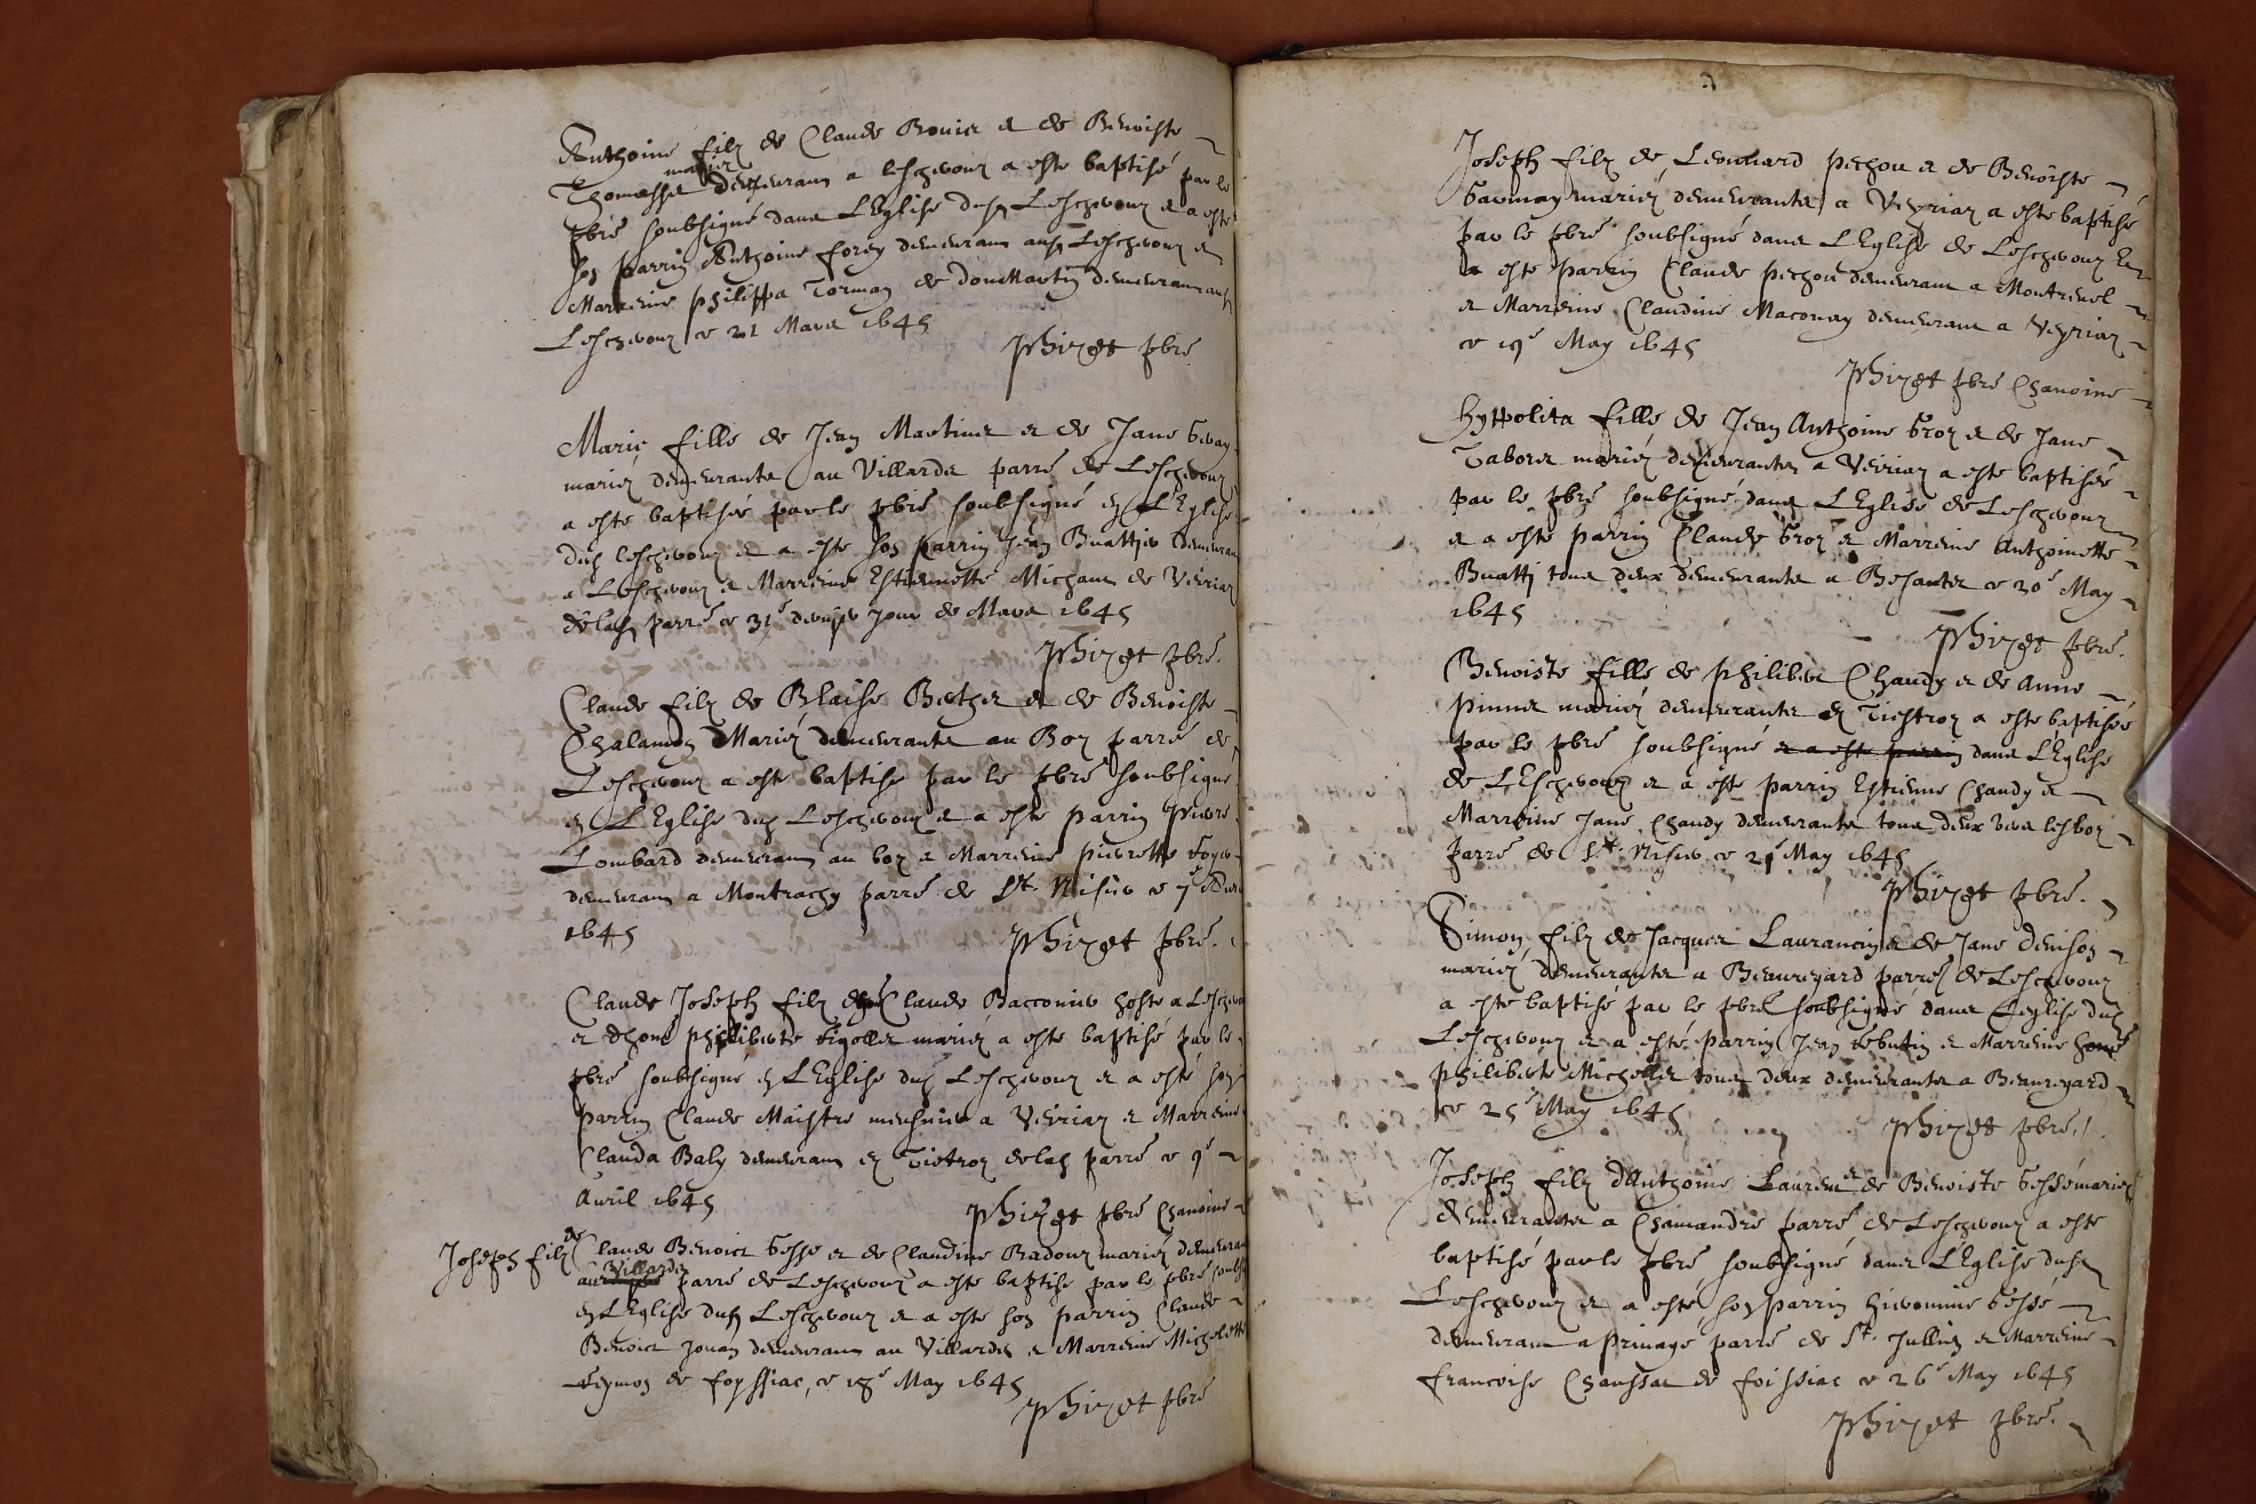 Anthoine filz de Claude Bouier et de Benoiste
mariez
Thomasset demeurans a Lescheroux a este baptisé par le
pbre soubsigné dans L'Eglise dud Lescheroux et a esté
son parrin Anthoine forey demeurant aud Lescheroux et
Marreine philippa Tormay de domMartin demeurant aud
Lescheroux ce 21 Mars 1645
Phizet pbre
Marie fille de Jean Martinet et de Jane
mariez demeurants au Villardz parre de Leschevoux
a este baptisée par le pbre soubsigné en L'Eglise
dud leschevoux et a este son parrin Jean Buattier demeurant
a Leschevoux et Marreine Estiennette Michant de Veiriaz
delad parre ce 31e dernier jour de Mars 1645
Phizet pbre.
Claude filz de Blaise Berthet et de Benoiste
Chalandon Mariez demeurants au Boz parre de
Leschevoux a este baptise par le pbre soubsigné
en L'Eglise dud Leschevoux et a este parrin Pierre
Lombard demeurant au boz et Marreine pierrette
demeurant a Montrachy parre de St. Nisier ce 7e
1645
Phizet pbre.
Claude Joseph filz de Claude Bacconier hoste a Leschevoux
et dhone philiberte Rigollet mariez a este baptisé par le
pbre soubsigné en L'Eglise dud Leschevoux et a esté son
parrin Claude Maistre meusnier a Veiriaz et Marreine
Clauda Baly demeurant en Tietroz delad parre ce 9e
Avril 1645
Phizet pbre Chanoine
de
Joseph filz Claude Benoict Gesse et de Claudine Radoux mariez demeurants
Villardz
au parre de Leschevoux a este baptise par le pbre
en L'Eglise dud Leschevoux et a este son parrin Claude
Benoict Jouan demeurant au Villardz et Marreine Michelette
Reymon de foyssiac, ce 18e May 1645
Phizet pbre
Joseph filz de Leonnard pechou et de Benoiste
Gavmay mariez demeurants a Veyriaz a este baptisé
par le pbre soubsigné dans L'Eglise de Leschevoux Et
a este parrin Claude pechou demeurant a Montrevel
et Marreine Claudine Maconay demeurant a Veyriaz
ce 19e May 1645
Phizet pbre Chanoine
hyppolita fille de Jean Anthoine Groz et de Jane
Taboret mariez demeurantz a Veiriaz a este baptisée
par le pbre soubsigné dans L'Eglise de Leschevoux
et a este parrin Claude Groz et Marreine Anthoinette
Buatti tous deux demeurants a Besantet ce 20e May
1645
Phizet pbre.
Benoiste fille de philibert Chandy et de Anne
pinnet mariez demeurants en Tiestroz a este baptisée
par le pbre soubsigné et a este parrin dans L'Eglise
de L'Eschevoux et a este parrin Estienne Chandy et
Marreine Jane Chandy demeurants tous deux vers lesboz
parre de St. Nisier ce 21e May 1645
Phizet pbre.
Simon filz de Jacques Laurancin et de Jane denison
mariez demeurants a Beauregard parre de Leschevoux
a este baptisé par le pbre soubsigné dans L'eglise dud
Leschevoux et a esté parrin Jean Rebutin et Marreine hone
philiberte Michellet tous deux demeurants a Beauregard
ce 25e May 1645
Phizet pbre.
Joseph filz dAnthoine Laurent et de Benoiste Gessé mariez
demeurants a Chamandré parre de Leschevoux a este
baptisé par le pbre soubsigné dans L'Eglise dud
Leschevoux et a esté son parrin hieronime Gessé
demeurant a Prinage parre de St. Jullin et Marreine
francoise Chaussat de foissiac ce 26e May 1645
Phizet pbre.